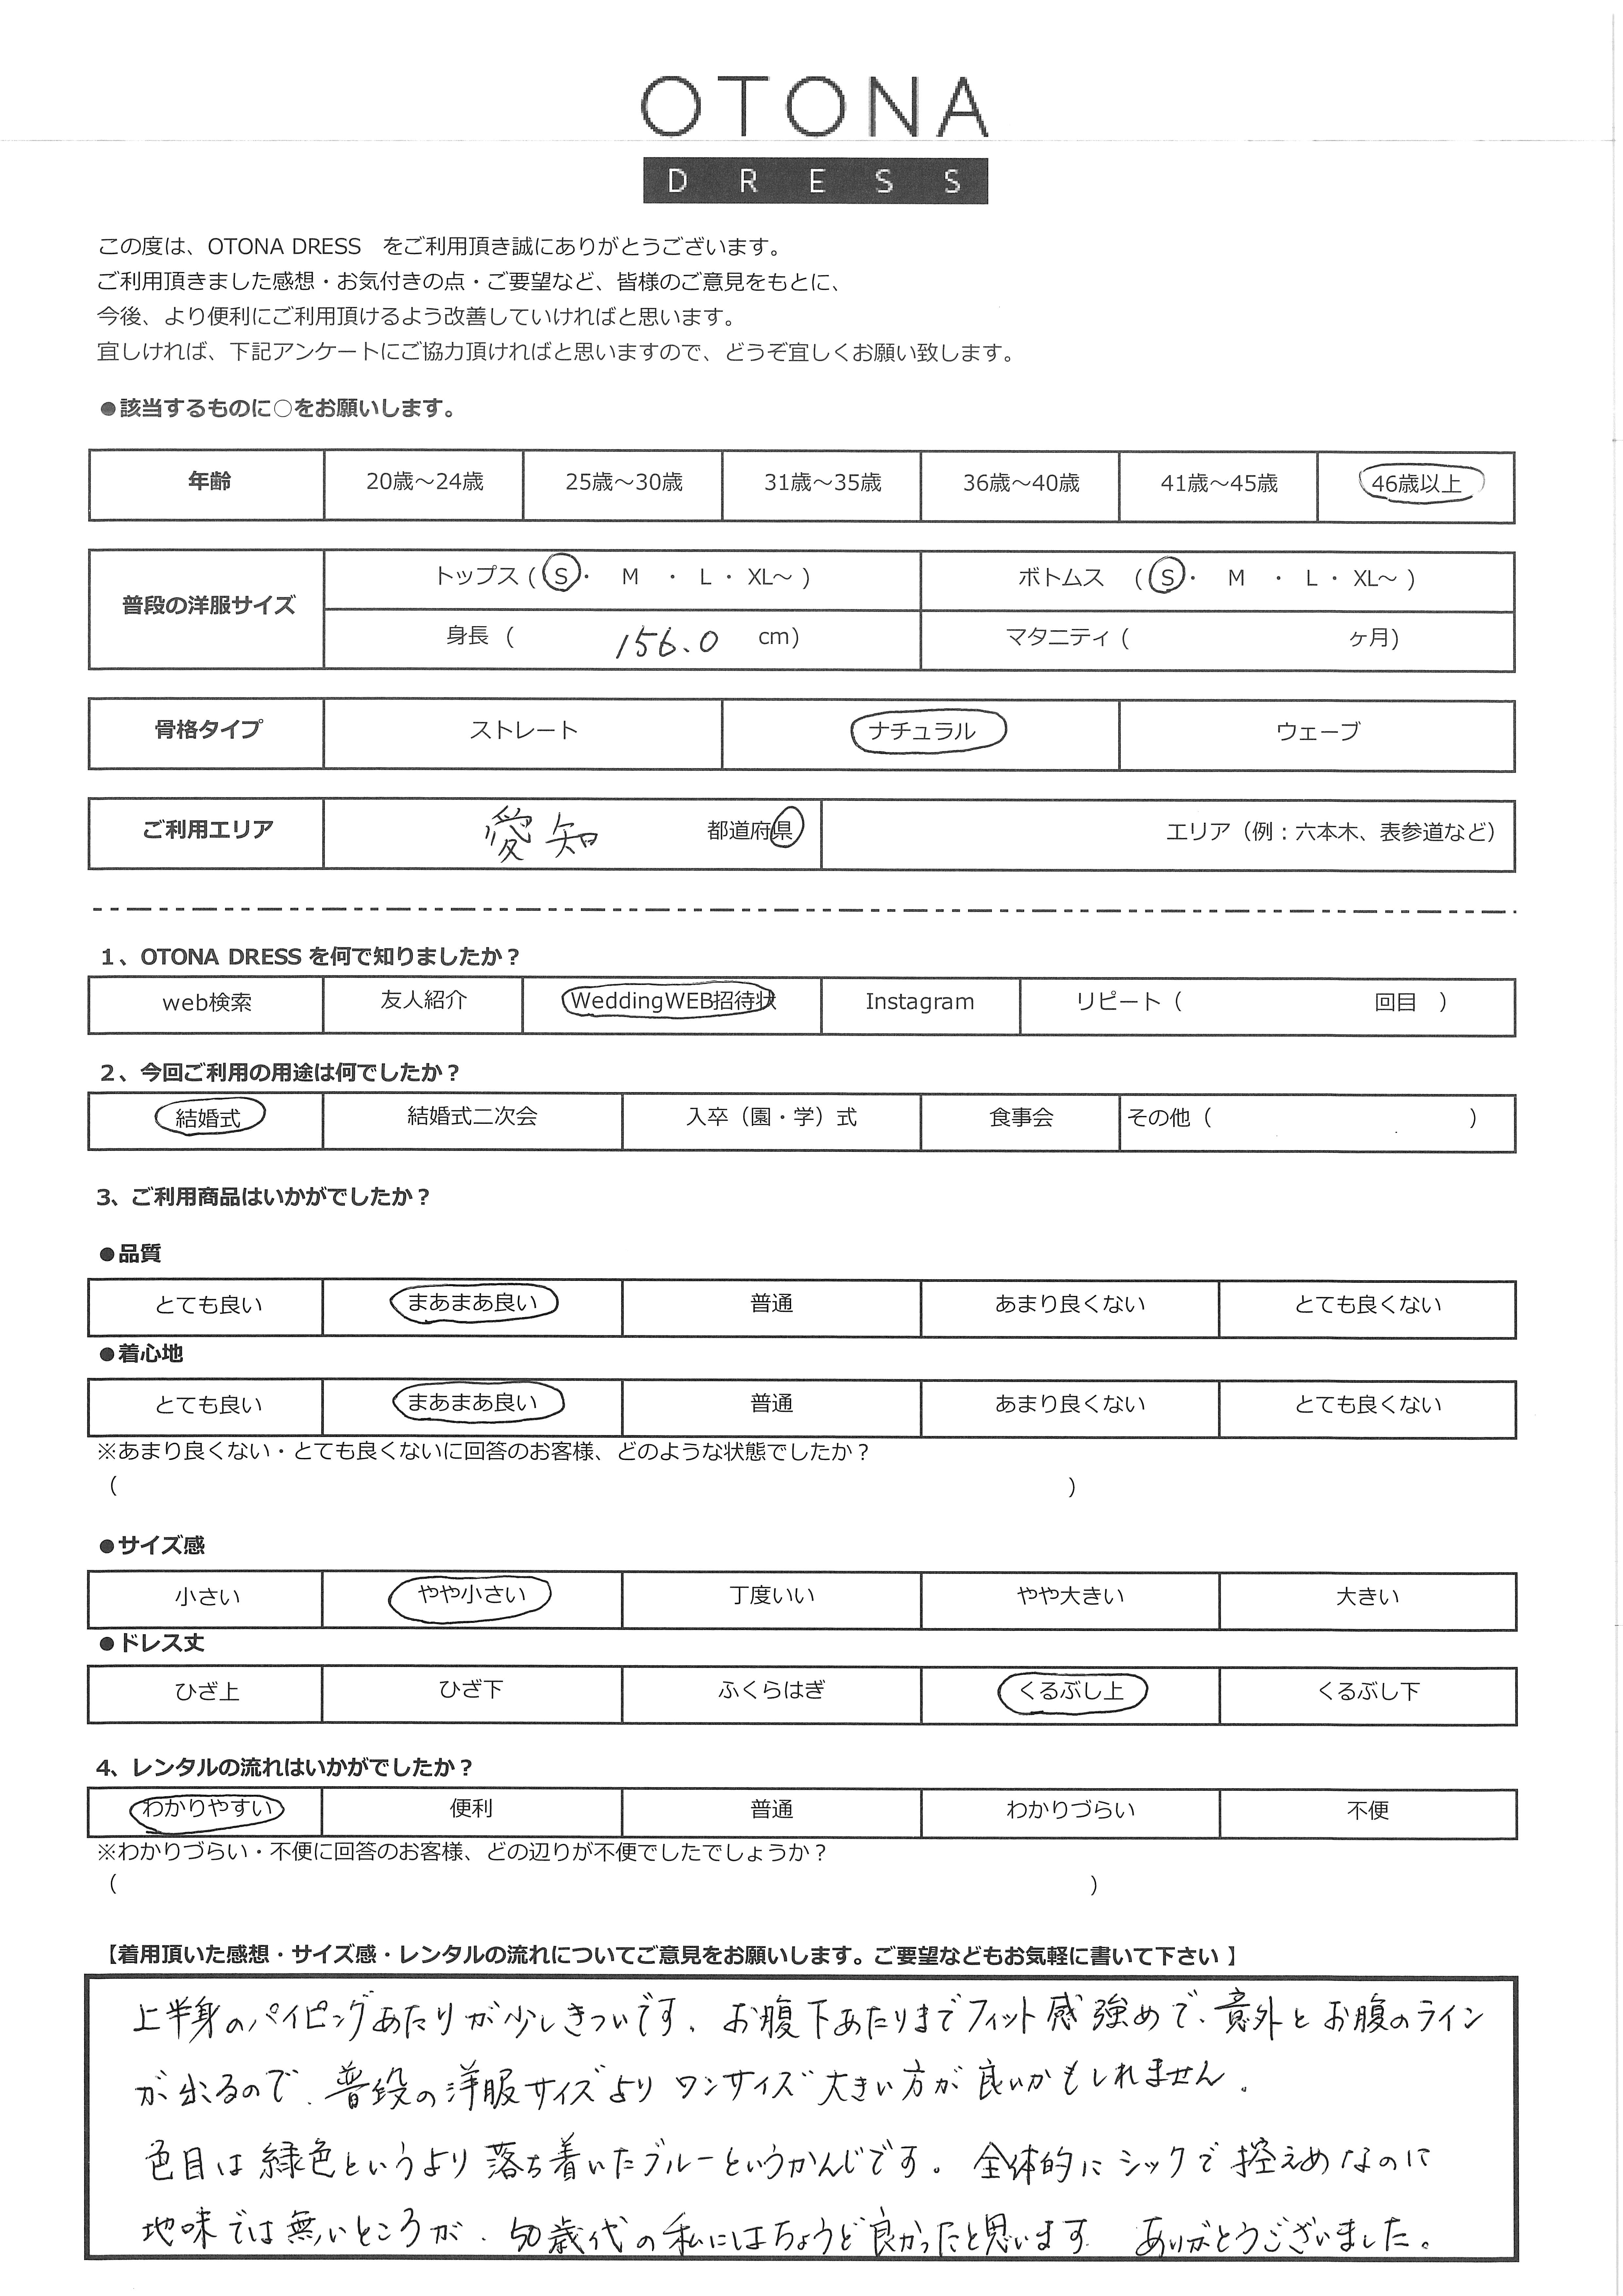 OTONA
DRESS
この度は、OTONA DRESS　をご利用頂き誠にありがとうございます。
ご利用頂きました感想・お気付きの点・ご要望など、皆様のご意見をもとに、
今後、より便利にご利用頂けるよう改善していければと思います。
宜しければ、下記アンケートにご協力頂ければと思いますので、どうぞ宜しくお願い致します。
●該当するものに○をお願いします。
年齢 20歳～24歳 25歳～30歳 31歳～35歳 36歳～40歳 41歳～45歳 46歳以上
普段の洋服サイズ トップス ( S ・ M ・ L ・ XL～ ) ボトムス ( S ・ M ・ L ・ XL～ )
身長 ( 156.0 cm) マタニティ ( ヶ月)
骨格タイプ ストレート ナチュラル ウェーブ
ご利用エリア 愛知 都道府県 エリア（例：六本木、表参道など）
1、OTONA DRESS を何で知りましたか？
web検索 友人紹介 WeddingWEB招待状 Instagram リピート（ 回目 ）
2、今回ご利用の用途は何でしたか？
結婚式 結婚式二次会 入卒（園・学）式 食事会 その他（ ）
3、ご利用商品はいかがでしたか？
●品質
とても良い まあまあ良い 普通 あまり良くない とても良くない
●着心地
とても良い まあまあ良い 普通 あまり良くない とても良くない
※あまり良くない・とても良くないに回答のお客様、どのような状態でしたか？
（ ）
●サイズ感
小さい やや小さい 丁度いい やや大きい 大きい
●ドレス丈
ひざ上 ひざ下 ふくらはぎ くるぶし上 くるぶし下
4、レンタルの流れはいかがでしたか？
わかりやすい 便利 普通 わかりづらい 不便
※わかりづらい・不便に回答のお客様、どの辺りが不便でしたでしょうか？
（ ）
【着用頂いた感想・サイズ感・レンタルの流れについてご意見をお願いします。ご要望などもお気軽に書いて下さい 】
上半身のパイピングあたりが少しきついです、お腹下あたりまでフィット感強めで、意外とお腹のライン
が出るので、普段の洋服サイズよりワンサイズ大きい方が良いかもしれません。
色目は緑色というより落ち着いたブルーというかんじです。全体的にシックで控えめなのに
地味では無いところが、50歳代の私にはちょうど良かったと思います ありがとうございました。